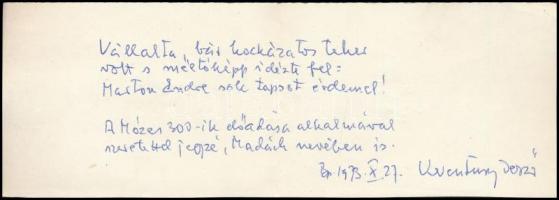 Vállalta, bár kockázatos teher
volt s méltóképp idézte fel:
Marton Endre sok tapsot érdemel!
A Mózes 300-ik előadása alkalmával
szeretettel jegyzé, Madách nevében is.
Bp. 1973. X. 27. Keresztury Dezső